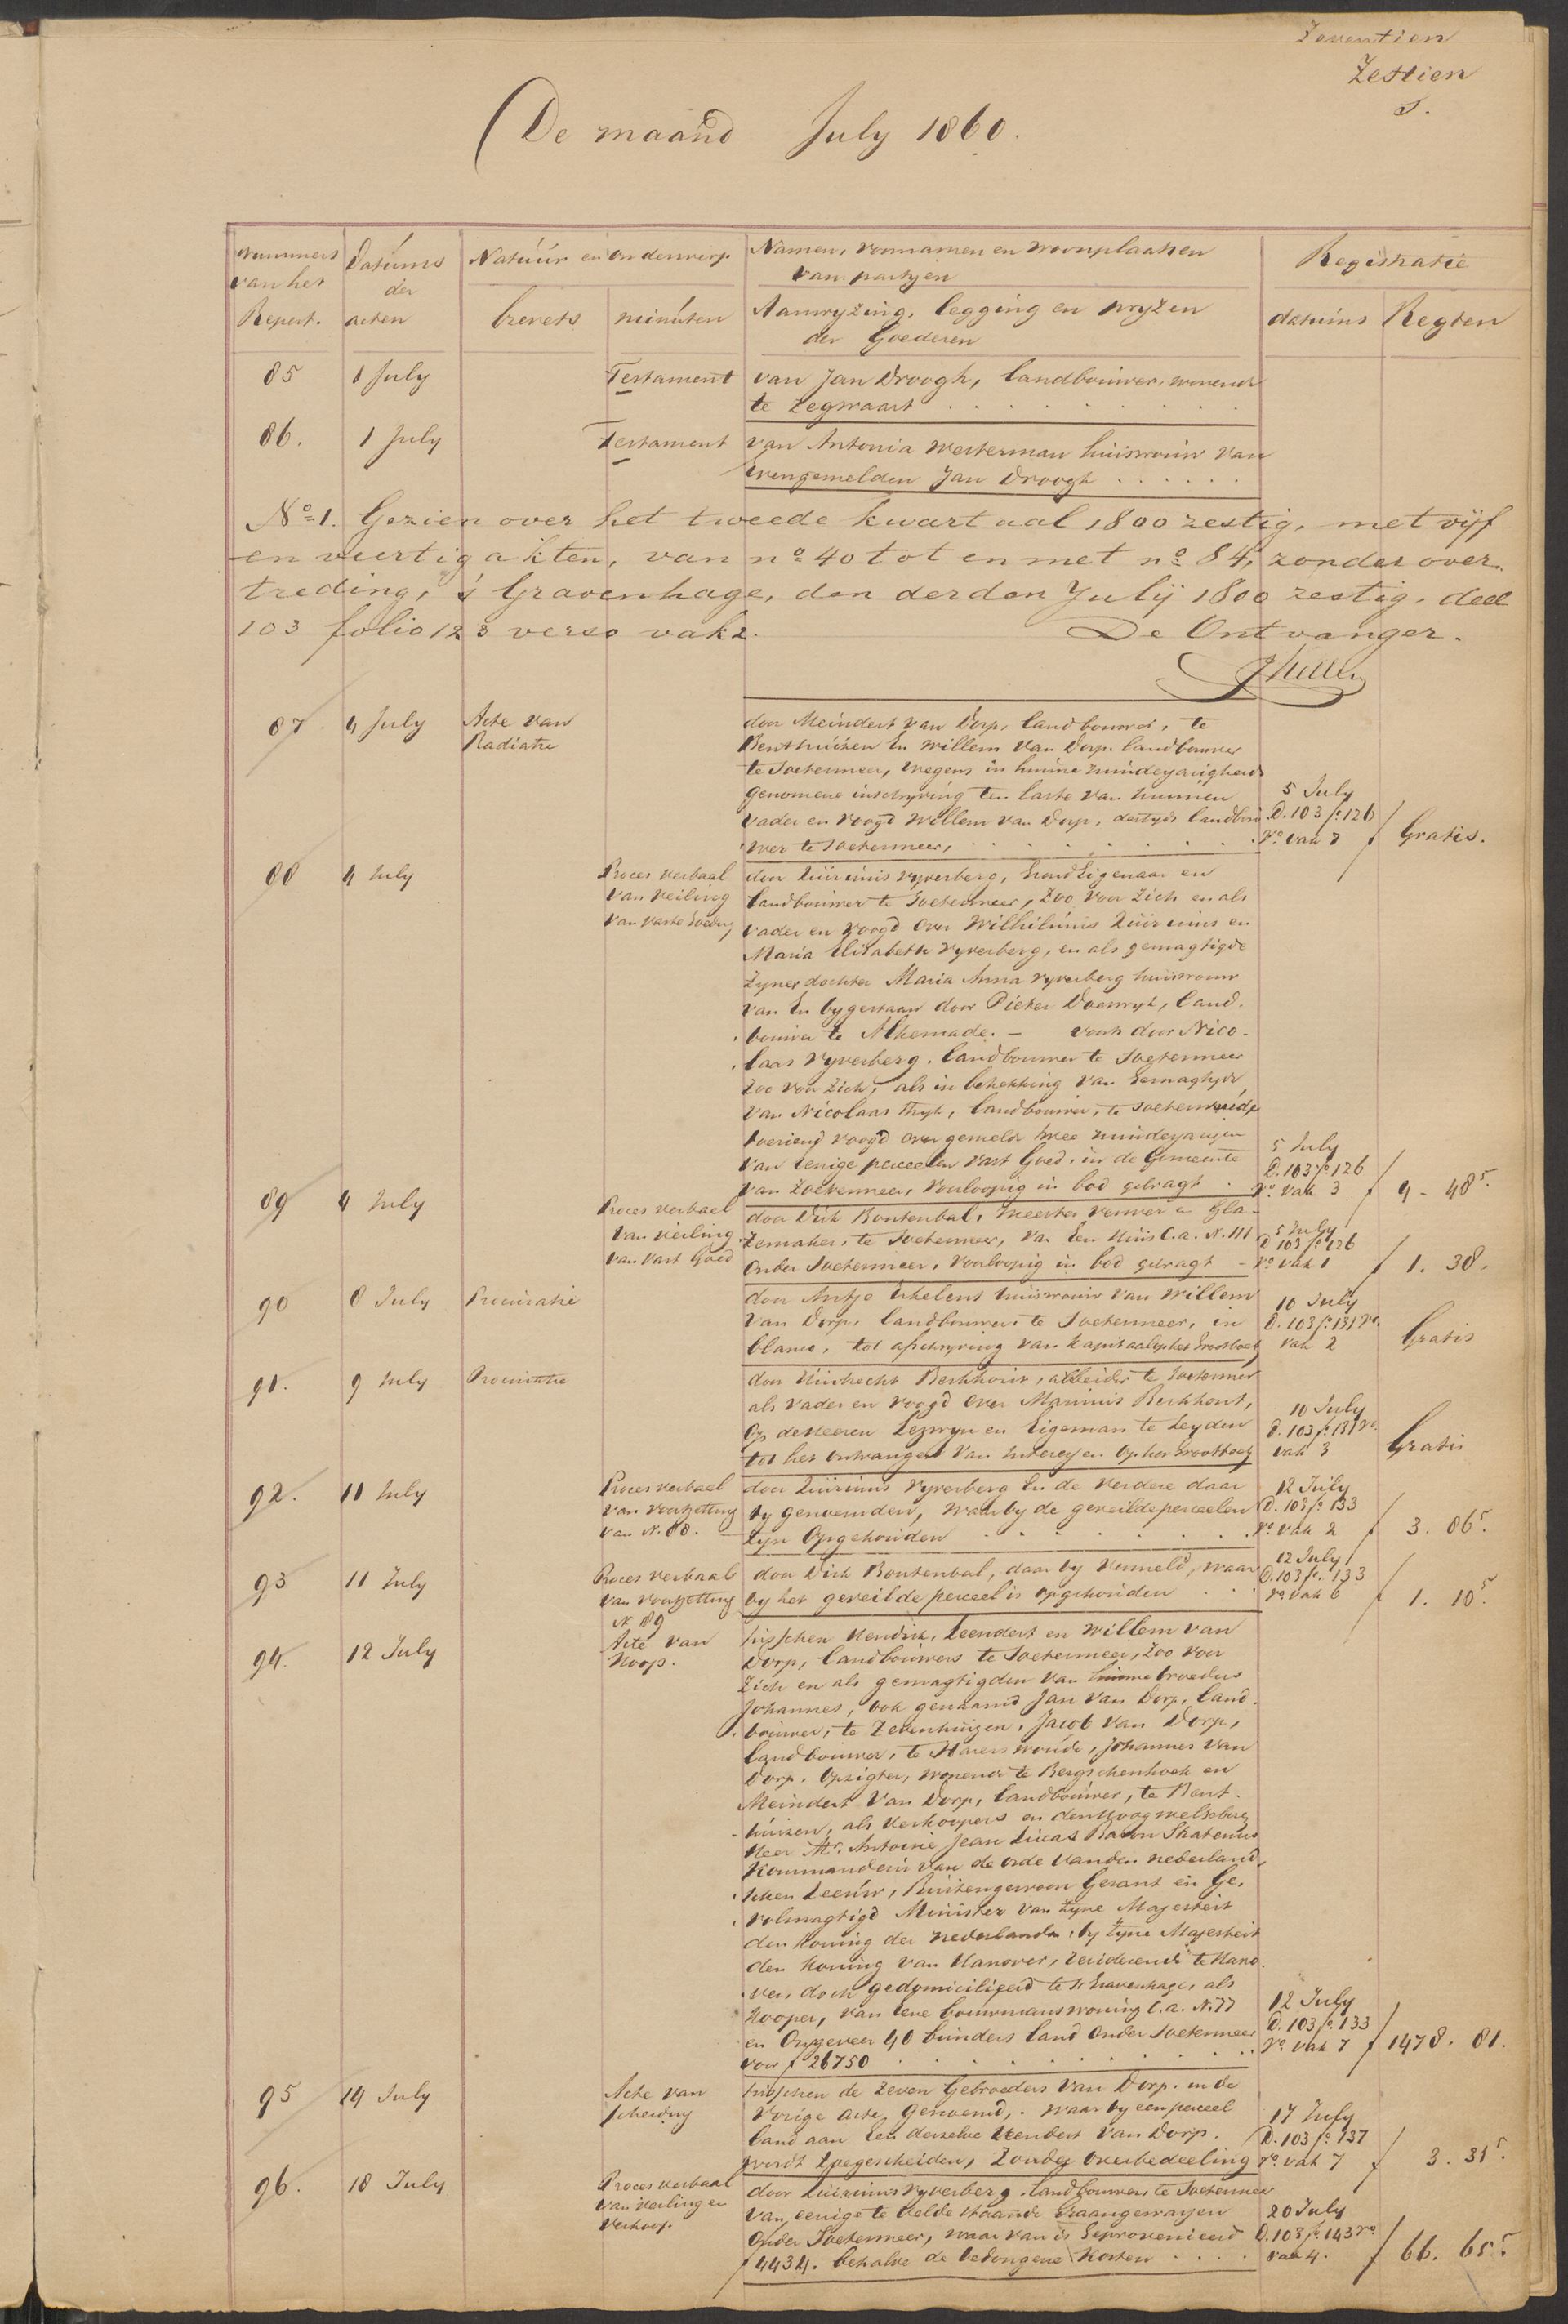 Zeventien
Zestien
S.
De maand July 1860.
Nummers van het Repert.
Datums der acten
Natuur en Onderwerp
brevets
minuten
Namen, voornamen en woonplaatsen van partyen
Aanwyzing, legging en pryzen der Goederen
Registratie
datums
Regten
85 1 July Testament van Jan Droogh, landbouwer, wonende
te Zegwaart
86. 1 July Testament van Antonia Westerman huisvrouw van
evengemelden Jan Droogh
No. 1. Gezien over het tweede kwartaal 1800 zestig, met vijf
en veertig akten, van no. 40 tot en met no. 84, zonder over-
treding, 's Gravenhage, den derden Julij 1800 zestig, deel
103 folio 123 verso vak 2. De Ontvanger.
87 4 July Acte van door Meindert van Dorp, landbouwer, te
Radiatie Benthuizen En Willem van Dorp landbouwer
te Soetermeer, wegens in hunne minderjarigheid
genomene inschryving ten laste van hunnen 5 July
vader en voogd Willem van Dorp, destyds landbou D. 103 fo. 126
wer te Soetermeer, vo. vak 7 f Gratis.
88 4 July Proces verbaal door Quirinus Vyverberg, Grond Eigenaar en
van veiling landbouwer te Soetermeer, Zoo voor Zich en als
van vaste Goedn vader en voogd over Wilhelmus Quirinus en
Maria Elisabeth Vyverberg, en als gemagtigde
Zyner dochter Maria Anna Vyverberg huisvrouw
van En bygestaan door Pieter Doeswyk, land-
bouwer te Alkemade. – voorts door Nico-
laas Vyverberg, landbouwer te Soetermeer
Zoo voor Zich, als in betrekking van Gemagtigde
van Nicolaas Thyk, landbouwer, te
toeziend voogd over gemelde twee minderjarigen 5 July
van eenige perceelen vast Goed, in de Gemeente D. 103 fo. 126
van Zoetermeer, voorloopig in bod gebragt vo. vak 3 f 4 - 48⁵.
89 4 July Proces verbaal door Dirk Bontenbal, meester verwer en Gla-
van veiling zemaker, te Soetermeer, van Een Huis C.a. N. 111 5 July D 103 fo. 126
van vast Goed onder Soetermeer, voorloopig in bod gebragt – vo. vak 1 f 1. 38.
90 8 July Procuratie door Antje Ekelens huisvrouw van Willem 10 July
van Dorp, landbouwer te Soetermeer, in D. 103 fo. 131 vo.
blanco, tot afschryving van kapitaal op het Grootboek vak 2 Gratis
91. 9 July Procuratie door Huibrecht Berkhout, arbeider te Soetermeer
als vader en voogd over Marinus Berkhout, 10 July
Op de Heeren Lezwyn en Eigeman te Leyden D. 103 fo. 131 vo.
tot het ontvangen van Interessen op het Grootboek vak 3 Gratis
92. 11 July Proces verbaal door Quirinus Vyverberg En de verdere daar 12 July
van voortzetting by genoemden, waarby de geveilde perceelen D. 103 fo. 133
van N. 88. Zyn Opgehouden vo. vak 2 f 3. 86⁵.
93 11 July Proces verbaal door Dirk Bontenbal, daar by vermeld, waar 12 July D. 103 fo. 133
van voortzetting by het geveilde perceel is opgehouden vo. vak 6 f 1. 10⁵
N 89
94. 12 July Acte van tusschen Hendrik, Leendert en Willem van
Koop. Dorp, landbouwers te Soetermeer, Zoo voor
Zich en als gemagtigden van hunne broeders
Johannes, ook genaamd Jan van Dorp, land-
bouwer, te Zevenhuizen, Jacob van Dorp,
landbouwer, te Hazerswoude, Johannes van
Dorp, Opzigter, wonende te Bergschenhoek en
Meindert van Dorp, landbouwer, te Bent-
huizen, als verkoopers en den Hoogwelgeboren
Heer Mr. Antoine Jean Lucas Baron Stratenus
Kommandeur van de orde van den nederland-
schen Leeuw, Buitengewoon Gezant en Ge-
volmagtigd Minister van Zyne Majesteit
den Koning der Nederlanden, by Zyne Majesteit
den Koning van Hanover, resideerende te Hano-
ver, doch gedomicilieerd te 's Gravenhage, als 12 July
Kooper, van eene bouwmanswoning C.a. N. 77 D. 103 fo. 133
en Ongeveer 40 bunders land onder Soetermeer vo. vak 7 f 1478. 81.
voor f 26750
95 14 July Acte van tusschen de Zeven Gebroeders van Dorp, in de
scheiding vorige acte genoemd, waar by een perceel 17 July
land aan Een derzelve Leendert van Dorp. D. 103 fo. 137
wordt toegescheiden, Zonder Overbedeeling vo. vak 7 f 3. 31⁵.
96. 18 July Proces verbaal door Quirinus Vyverberg, landbouwer te Soetermeer
van veiling en van eenige te velde staande Graangewassen 20 July
verkoop. onder Soetermeer, waar van is Geprovenieerd D. 103 fo. 143 vo
f 4434. behalve de bedongene Kosten vak 4. f 66. 65⁵.